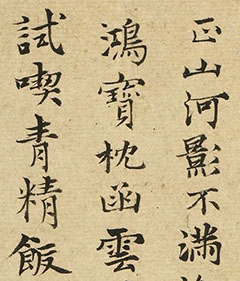 正山河影不滿
鴻寶枕函雲
試喫青精飯